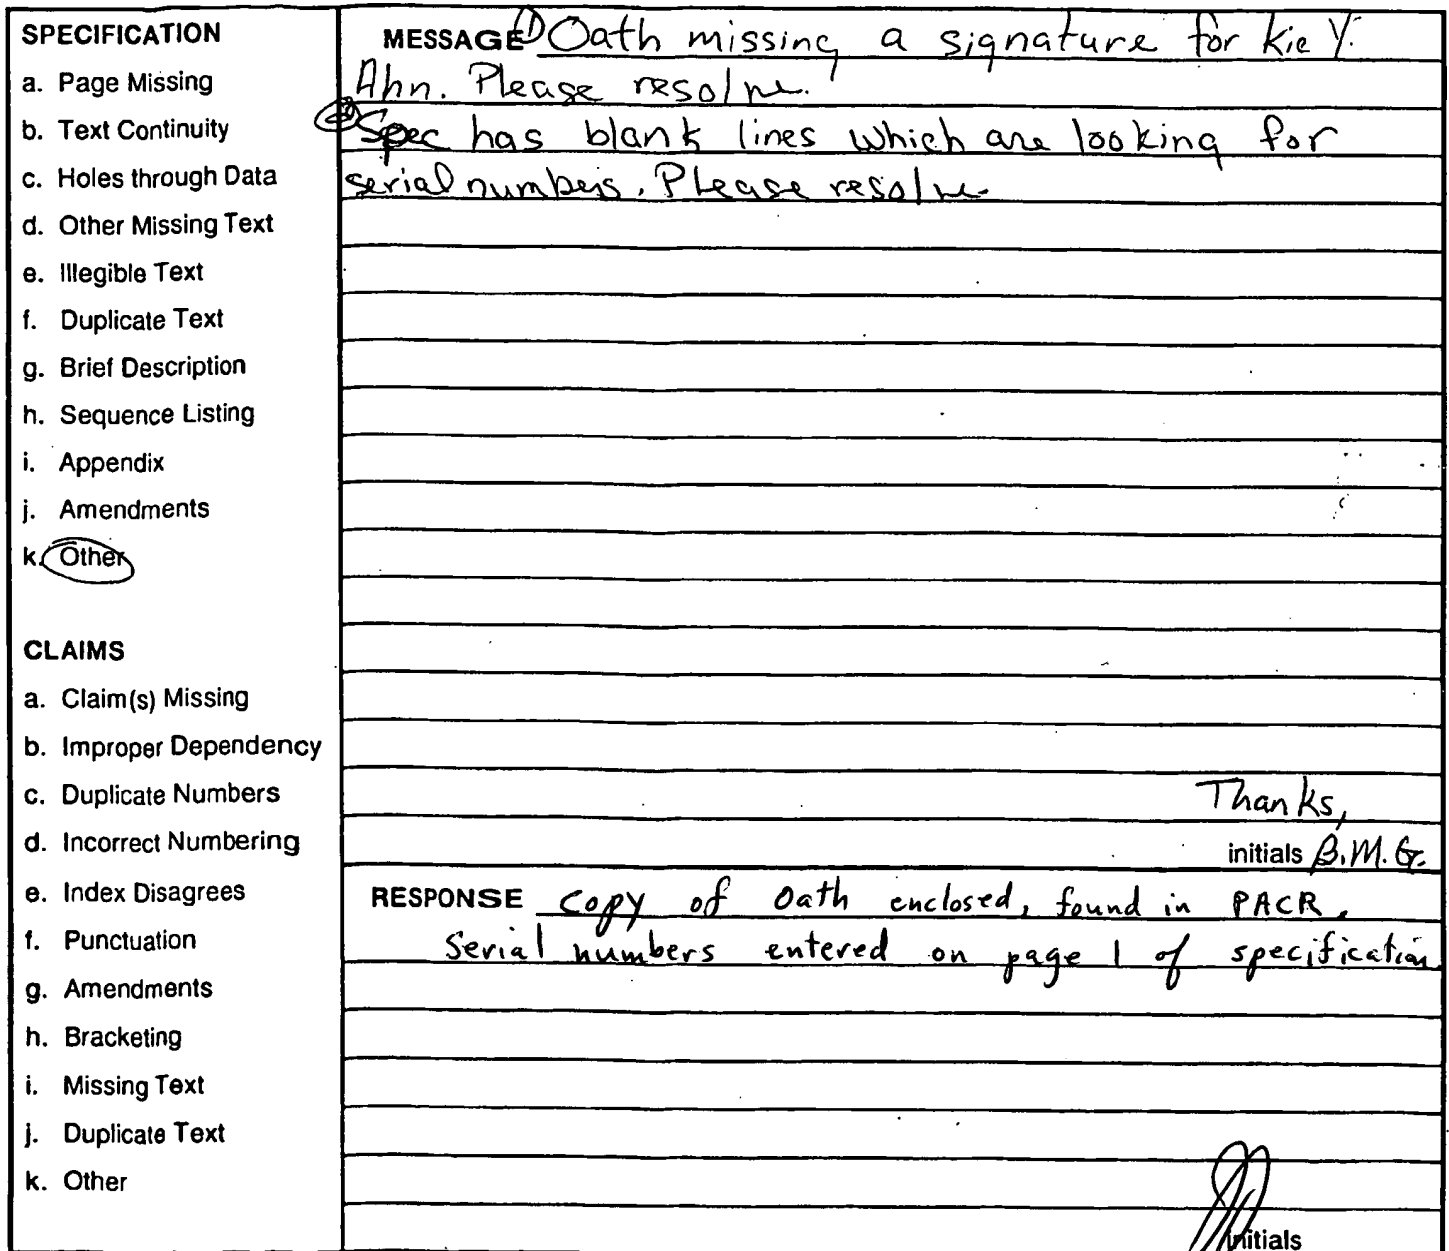 SPECIFICATION
a. Page Missing
b. Text Continuity
c. Holes through Data
d. Other Missing Text
e. Illegible Text
f. Duplicate Text
g. Brief Description
h. Sequence Listing
i. Appendix
j. Amendments
k. Other
CLAIMS
a. Claim(s) Missing
b. Improper Dependency
c. Duplicate Numbers
d. Incorrect Numbering
e. Index Disagrees
f. Punctuation
g. Amendments
h. Bracketing
i. Missing Text
j. Duplicate Text
k. Other
MESSAGE ① Oath missing a signature for Kie Y.
Ahn. Please resolve.
② Spec has blank lines which are looking for
serial numbers. Please resolve.
Thanks,
initials B.M.G.
RESPONSE copy of Oath enclosed, found in PACR.
Serial numbers entered on page 1 of specification
initials